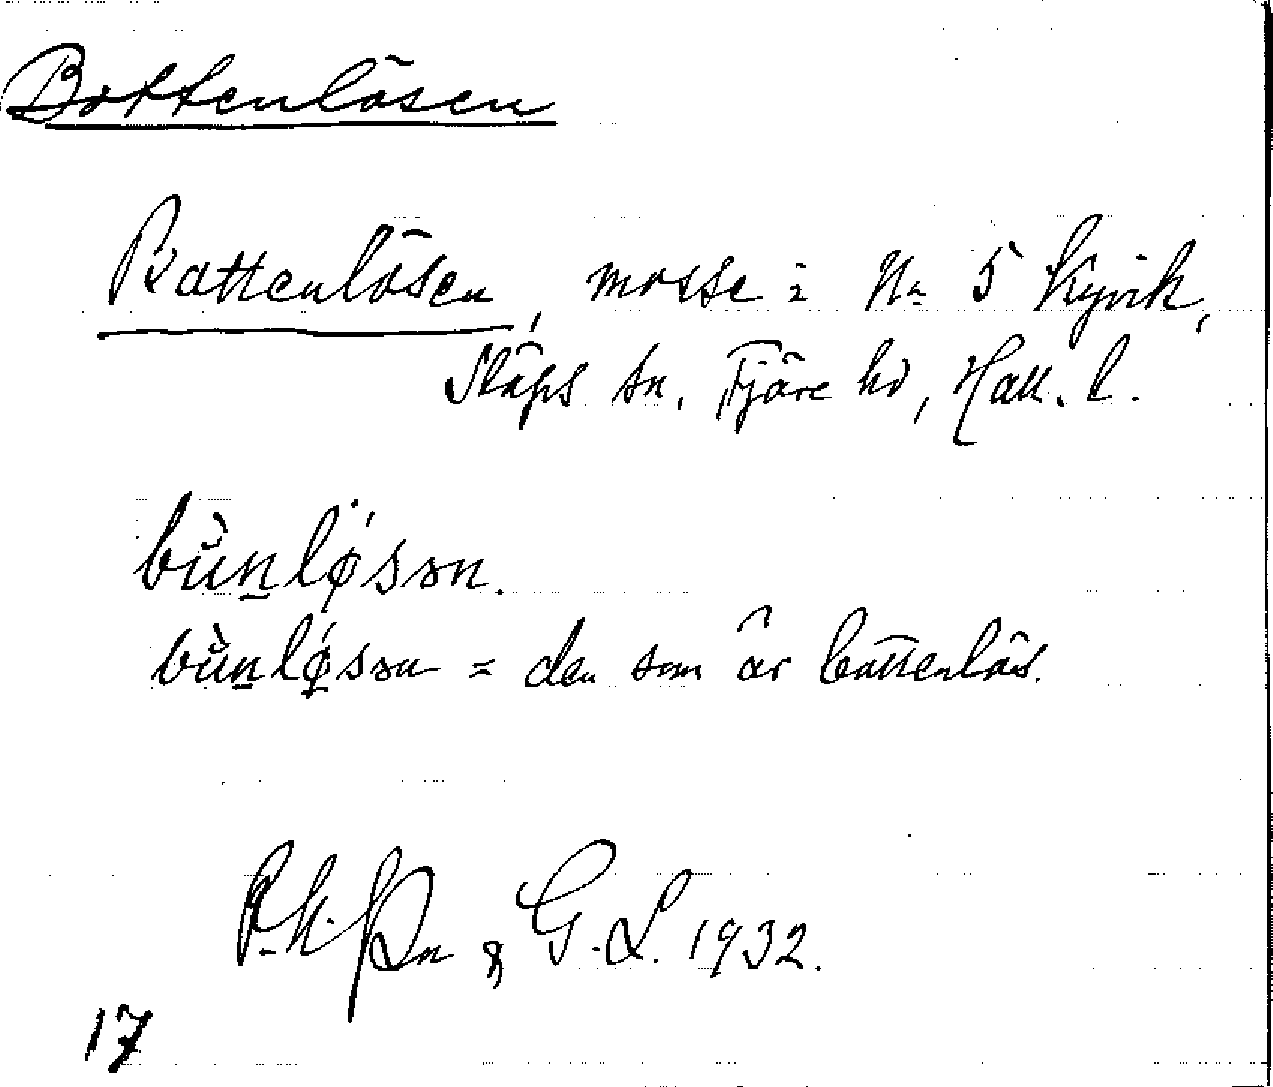 Bottenlösen
Bottenlösen, mosse i Nr 5 Kyvik,
Släps sn, Fjäre hd, Hall. l.
bùn̲lǿsən.
bùn̲lǿsən = den som är bottenlös.
& G. L. 1932.
17